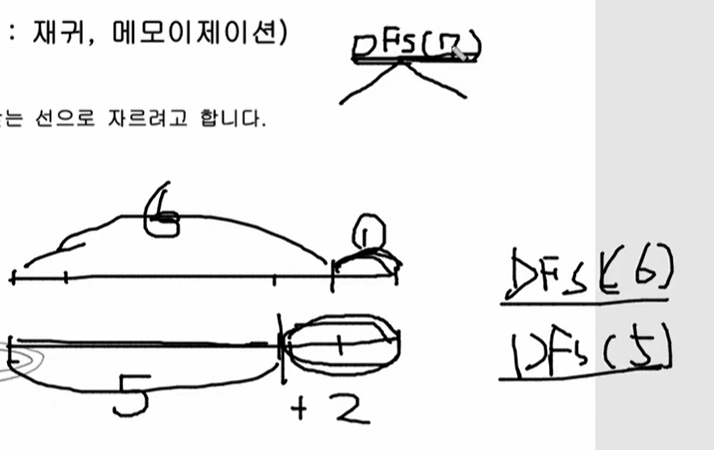 : 재귀, 메모이제이션)
DFS(7)
는 선으로 자르려고 합니다.
6
1
DFS(6)
DFS(5)
5
+ 2